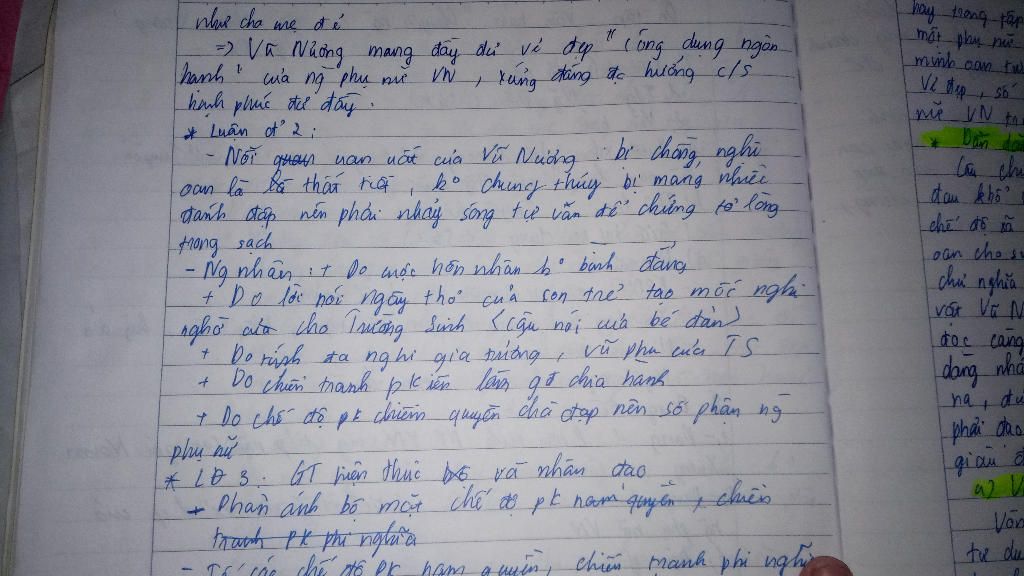 như cha mẹ đẻ
=> Vũ Nương mang đầy đủ vẻ đẹp "công dung ngôn
hạnh" của ng phụ nữ VN, xứng đáng đc hưởng c/s
hạnh phúc đủ đầy.
* Luận đ' 2:
- Nỗi quan uan uất của Vũ Nương: bị chồng nghi
oan là thất tiết, ko chung thủy bị mang nhiếc
đánh đập nên phải nhảy sông tự vẫn để chứng tỏ lòng
trong sạch
- Ng nhân: + Do cuộc hôn nhân ko bình đẳng
+ Do lời nói ngây thơ của con trẻ tạo mối nghi
ngờ cho Trương Sinh <câu nói của bé đản>
+ Do tính đa nghi gia trưởng, vũ phu của TS
+ Do chiến tranh pk
+ Do chế độ pk chiếm quyền chà đạp nên số phận ng
phụ nữ
* LĐ 3: GT hiện thực và nhân đạo
+ Phản ánh bộ mặt chế độ pk nam quyền, chiến
tranh PK phi nghĩa
- Tố cáo chế độ PK nam quyền, chiến tranh phi nghĩa
hay trong
một phụ nữ
minh oan
Vẻ đẹp, số
nữ VN
* Dẫn
Câu
đau khổ
chế độ
oan cho
chủ nghĩa
với Vũ N
đọc càng
dàng
na, đ
phải
giàu
a) V